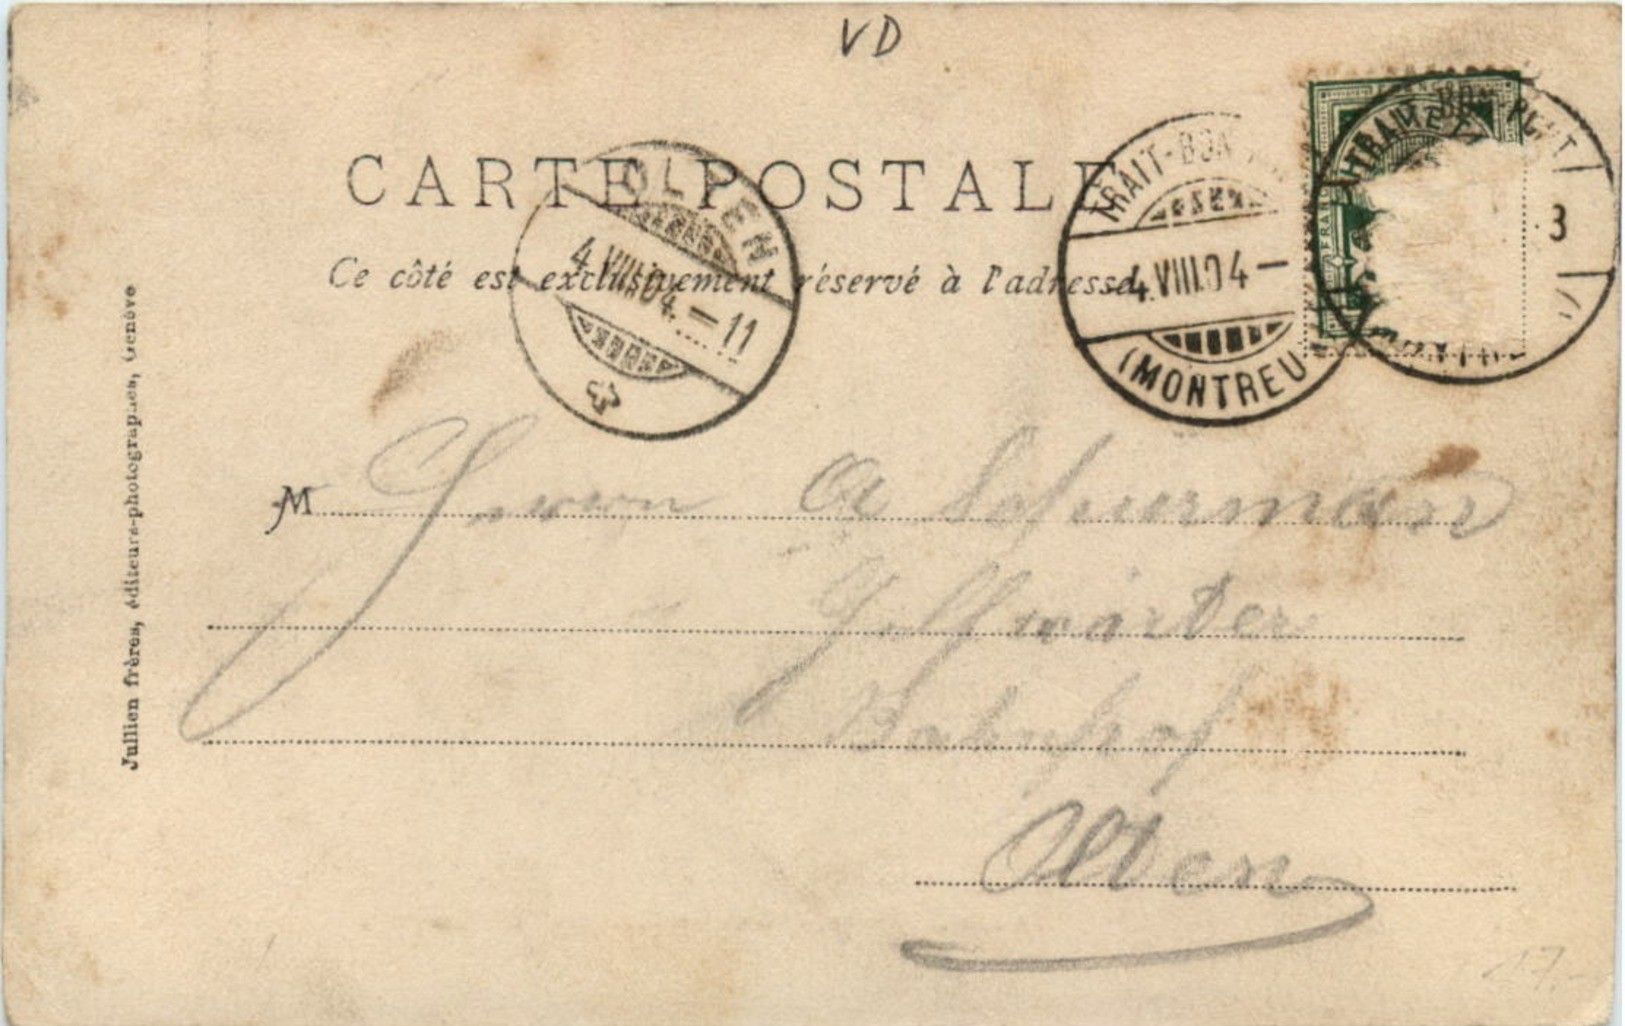 VD
CARTE POSTALE
Ce côté est exclusivement réservé à l'adresse
OLTEN
4.VIII.04.–11
TRAIT-BON
4.VIII.04–
(MONTREU
TRAIT-BON-PORT
3
FRAN
Jullien frères, éditeurs-photographes, Genève
M Herrn A Schürmann
Bahnhof
Olten
17.-